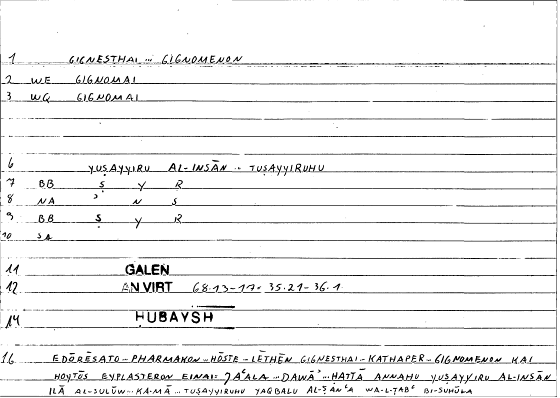 1 GIGNESTHAI ... GIGNOMENON
2 WE GIGNOMAI
3 WQ GIGNOMAI
6 YUṢAYYIRU AL-INSĀN ... TUṢAYYIRUHU
7 BB Ṣ Y R
8 NA ʾ N S
9 BB Ṣ Y R
10 SA
11 GALEN
12 AN VIRT 68.13-17 - 35.21-36.1
14 HUBAYSH
16 EDŌRĒSATO - PHARMAKON ... HŌSTE - LĒTHĒN GIGNESTHAI - KATHAPER - GIGNOMENON KAI
HOUTŌS EUPLASTERON EINAI = JAʿALA ... DAWĀʾ ... HATTĀ ANNAHU YUṢAYYIRU AL-INSĀN
ILĀ AL-SULŪW ... KA-MĀ ... TUṢAYYIRUHU YAQBALU WA-L-ṬABʿ BI-SUHŪLA